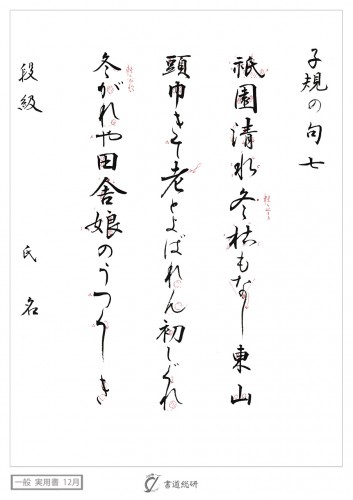 子規の句七
祇園清水冬枯もなし東山
頭巾きて老とよばれん初しぐれ
冬がれや田舎娘のうつくしき
段級 氏名
一般 実用書 12月
書道総研